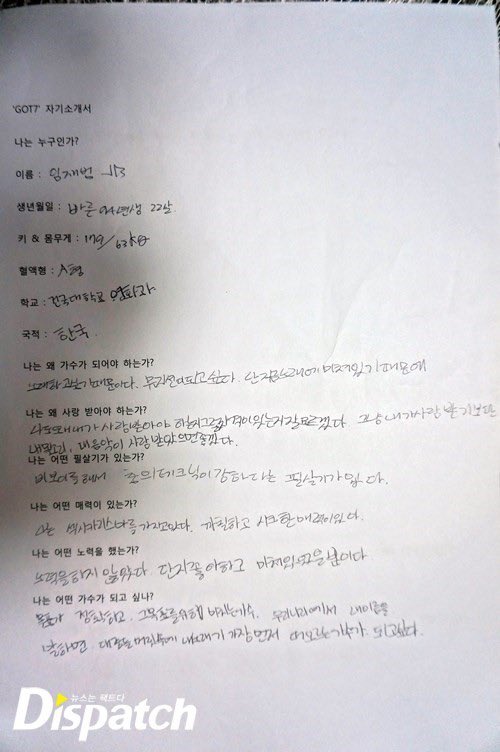 'GOT7' 자기소개서
나는 누구인가?
이름 : 임재범 JB
생년월일 : 빠른 94년생 22살
키 & 몸무게 : 179/63kg
혈액형 : A형
학교 : 건국대학교 영화과
국적 : 한국
나는 왜 가수가 되어야 하는가?
노래하고싶기 때문이다. 무리 되고싶다. 난 지금 노래에 미쳐있기 때문에
나는 왜 사랑 받아야 하는가?
내가 사랑받아야 하는지 그 이 있는지 잘 모르겠다. 그냥 내가 사랑 받기보단
내 목소리, 내 음악이 사랑 받았으면 좋겠다.
나는 어떤 필살기가 있는가?
비보이로써 춤의 테크닉이 강하다는 필살기가 있다.
나는 어떤 매력이 있는가?
나는 섹시 카리스마를 가지고있다. 까칠하고 시크한 매력이있다.
나는 어떤 노력을 했는가?
노력을 하지 않았다 단지 좋아하고 미쳐있었을 뿐이다
나는 어떤 가수가 되고 싶나?
목표가 정확하고. 그 목표를 위해 가수. 우리나라에서 내이름을
말하면 대중들 머릿속에 내 노래가 가장먼저 떠오르는가수가 되고싶다.
뉴스는 팩트다
Dispatch